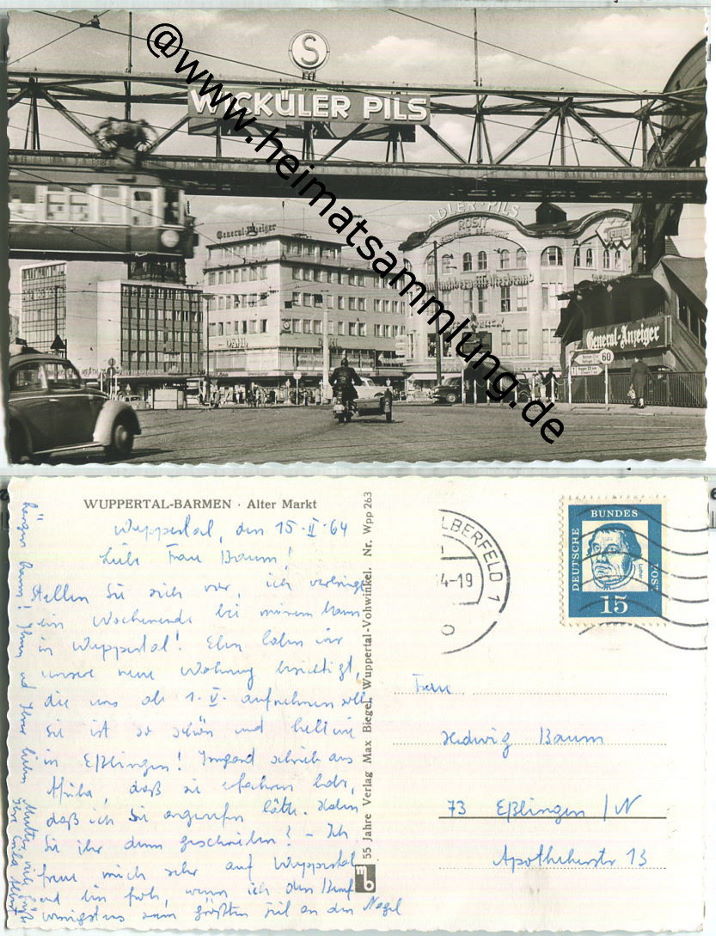 S
WICKÜLER PILS
@www.heimatsammlung.de
General-Anzeiger
ADLER-PILS
General-Anzeiger
60
WUPPERTAL-BARMEN · Alter Markt
Wuppertal, den 15.II.64
Liebe Frau Baum!
Stellen Sie sich vor, ich verbringe
ein Wochenende bei meinem Mann
in Wuppertal! Eben haben wir
unsere neue Wohnung besichtigt,
die uns ab 1.V. aufnehmen soll.
Sie ist so schön und hell wie
in Eßlingen! Irmgard schrieb aus
Afrika, daß sie erfahren habe,
daß ich Sie angerufen hätte. Haben
Sie ihr denn geschrieben? - Ich
freue mich sehr auf Wuppertal
und bin froh, wenn ich den Kampf
wenigstens zum größten Teil an den Nagel
hängen kann! Ihnen und Ihrer lieben Mutter viele Grüße
55 Jahre Verlag Max Biegel, Wuppertal-Vohwinkel. Nr. Wpp 263
mb
LBERFELD 1
4-19
DEUTSCHE
BUNDES
POST
15
Frau
Hedwig Baum
73 Eßlingen/N
Apothekerstr 13